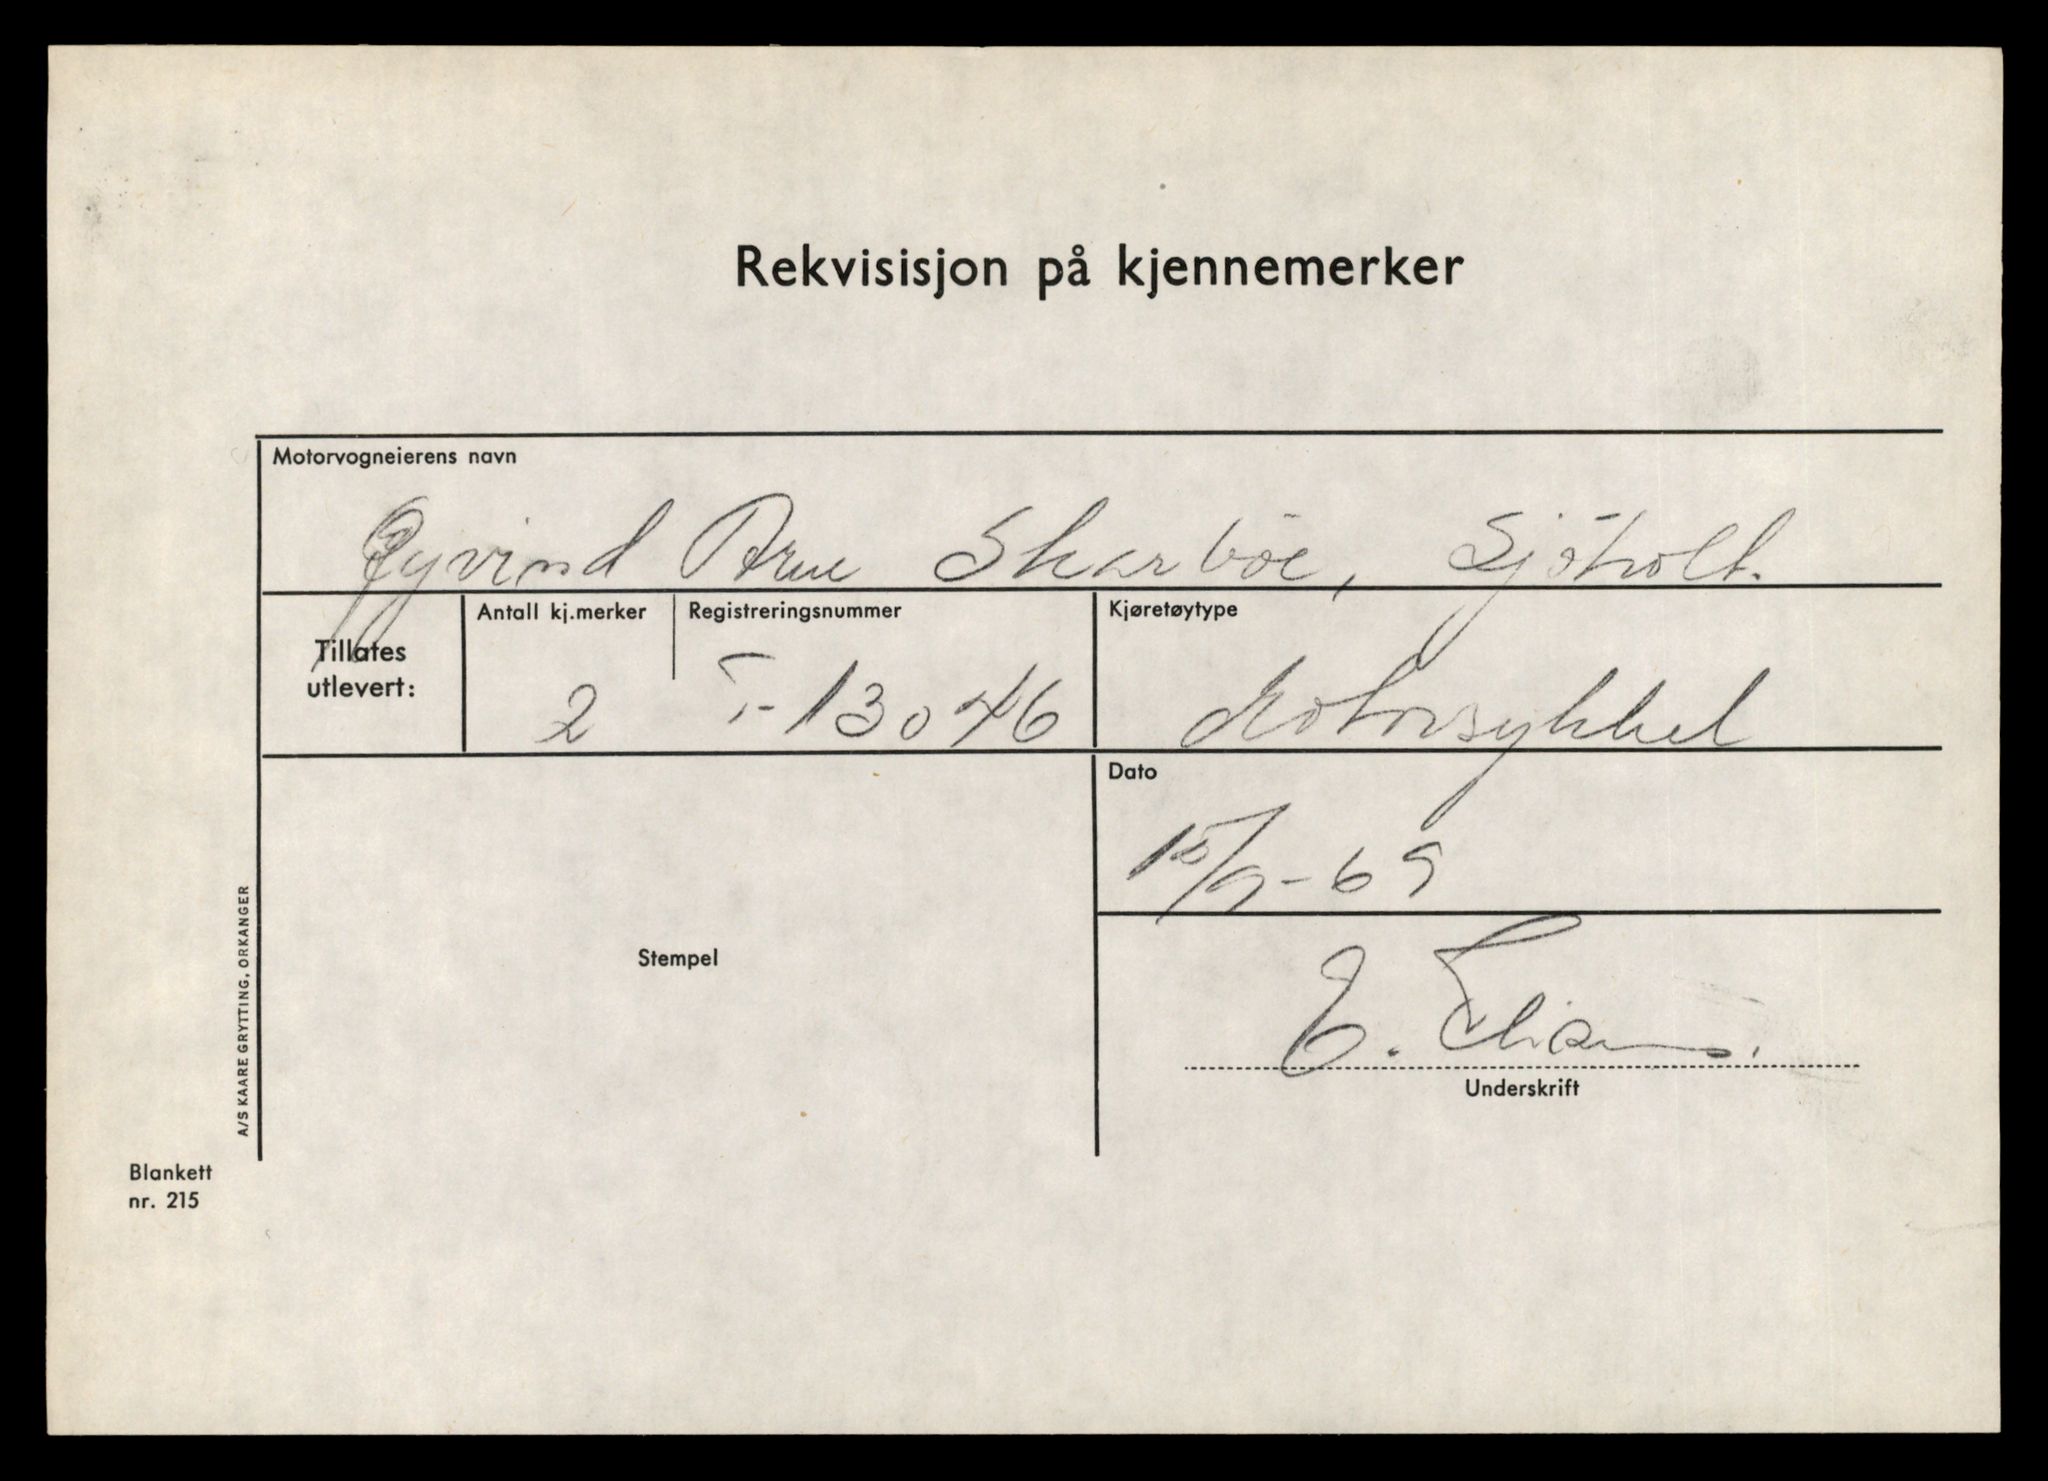 Rekvisisjon på kjennemerker
Motorvogneierens navn
Øyvind Arne Skarböe, Sjöholt.
Tillates utlevert:
Antall kj.merker
2
Registreringsnummer
T-13046
Kjøretøytype
Motorsykkel
Dato
15/9-69
Stempel
E.
Underskrift
A/S KAARE GRYTTING, ORKANGER
Blankett
nr. 215